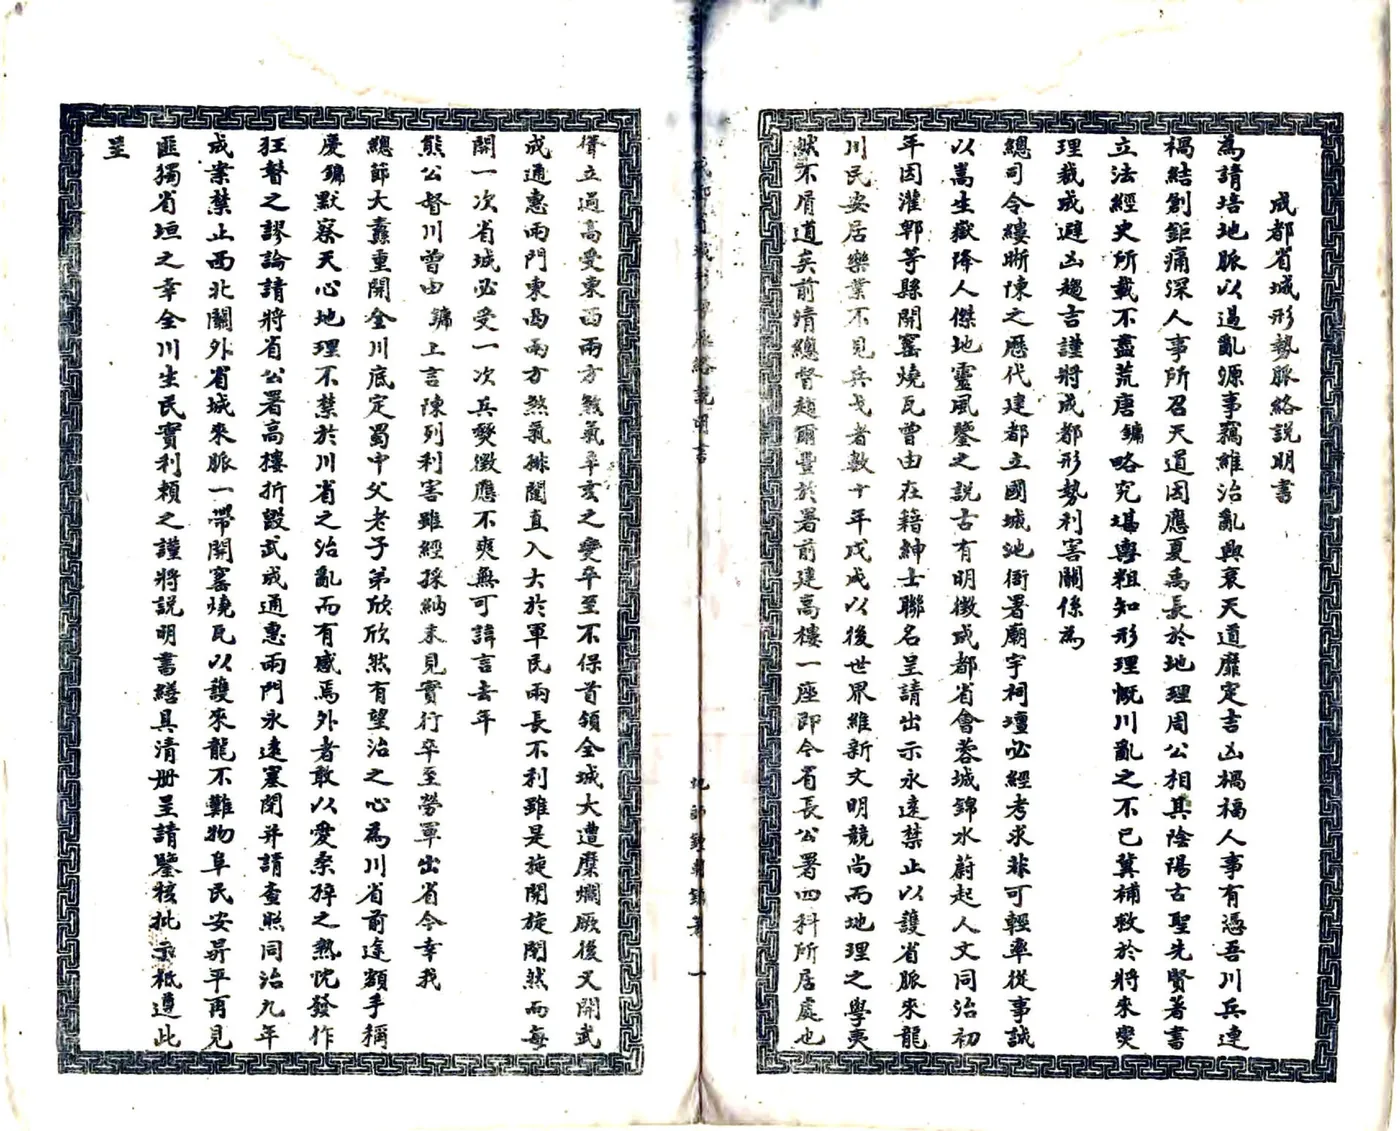 成都省城形勢脈絡説明書
為請培地脈以遏亂源事竊維治亂興衰天道靡定吉凶禍福人事有憑吾川兵連
禍結創鉅痛深人事所召天道因應夏禹長於地理周公相其陰陽古聖先賢著書
立法經史所載不盡荒唐鏞略究堪輿粗知形理慨川亂之不已冀補救於將來爕
理裁成避凶趨吉謹將成都形勢利害關係為
總司令縷晰陳之歷代建都立國城池衙署廟宇祠壇必經考求非可輕率從事誠
以嵩生嶽降人傑地靈風鑒之説古有明徵成都省會蓉城錦水蔚起人文同治初
年因灌郫等縣開窰燒瓦曾由在籍紳士聯名呈請出示永遠禁止以護省脈來龍
川民安居樂業不見兵戈者數十年戊戌以後世界維新文明競尚而地理之學夷
然不屑道矣前清總督趙爾豐於署前建高樓一座即今省長公署四科所居處也
聳立過高受東西兩方煞氣辛亥之變卒至不保首領全城大遭糜爛厥後又開武
成通惠兩門東西兩方煞氣排闥直入大於軍民兩長不利雖是旋開旋閉然而每
開一次省城必受一次兵燹徵應不爽無可諱言去年
熊公督川曾由鏞上言陳列利害雖經採納未見實行卒至勞軍出省今幸我
總節大纛重開全川底定蜀中父老子弟欣欣然有望治之心為川省前途額手稱
慶鏞默察天心地理不禁於川省之治亂而有感焉外者敢以愛桑梓之熱忱發作
狂瞽之謬論請將省公署高樓折毀武成通惠兩門永遠塞閉并請查照同治九年
成案禁止西北關外省城來脈一帶開窰燒瓦以護來龍不難物阜民安昇平再見
匪獨省垣之幸全川生民實利賴之謹將説明書繕具清册呈請鑒核批示祗遵此
呈
成都省城形勢脈絡説明書
一